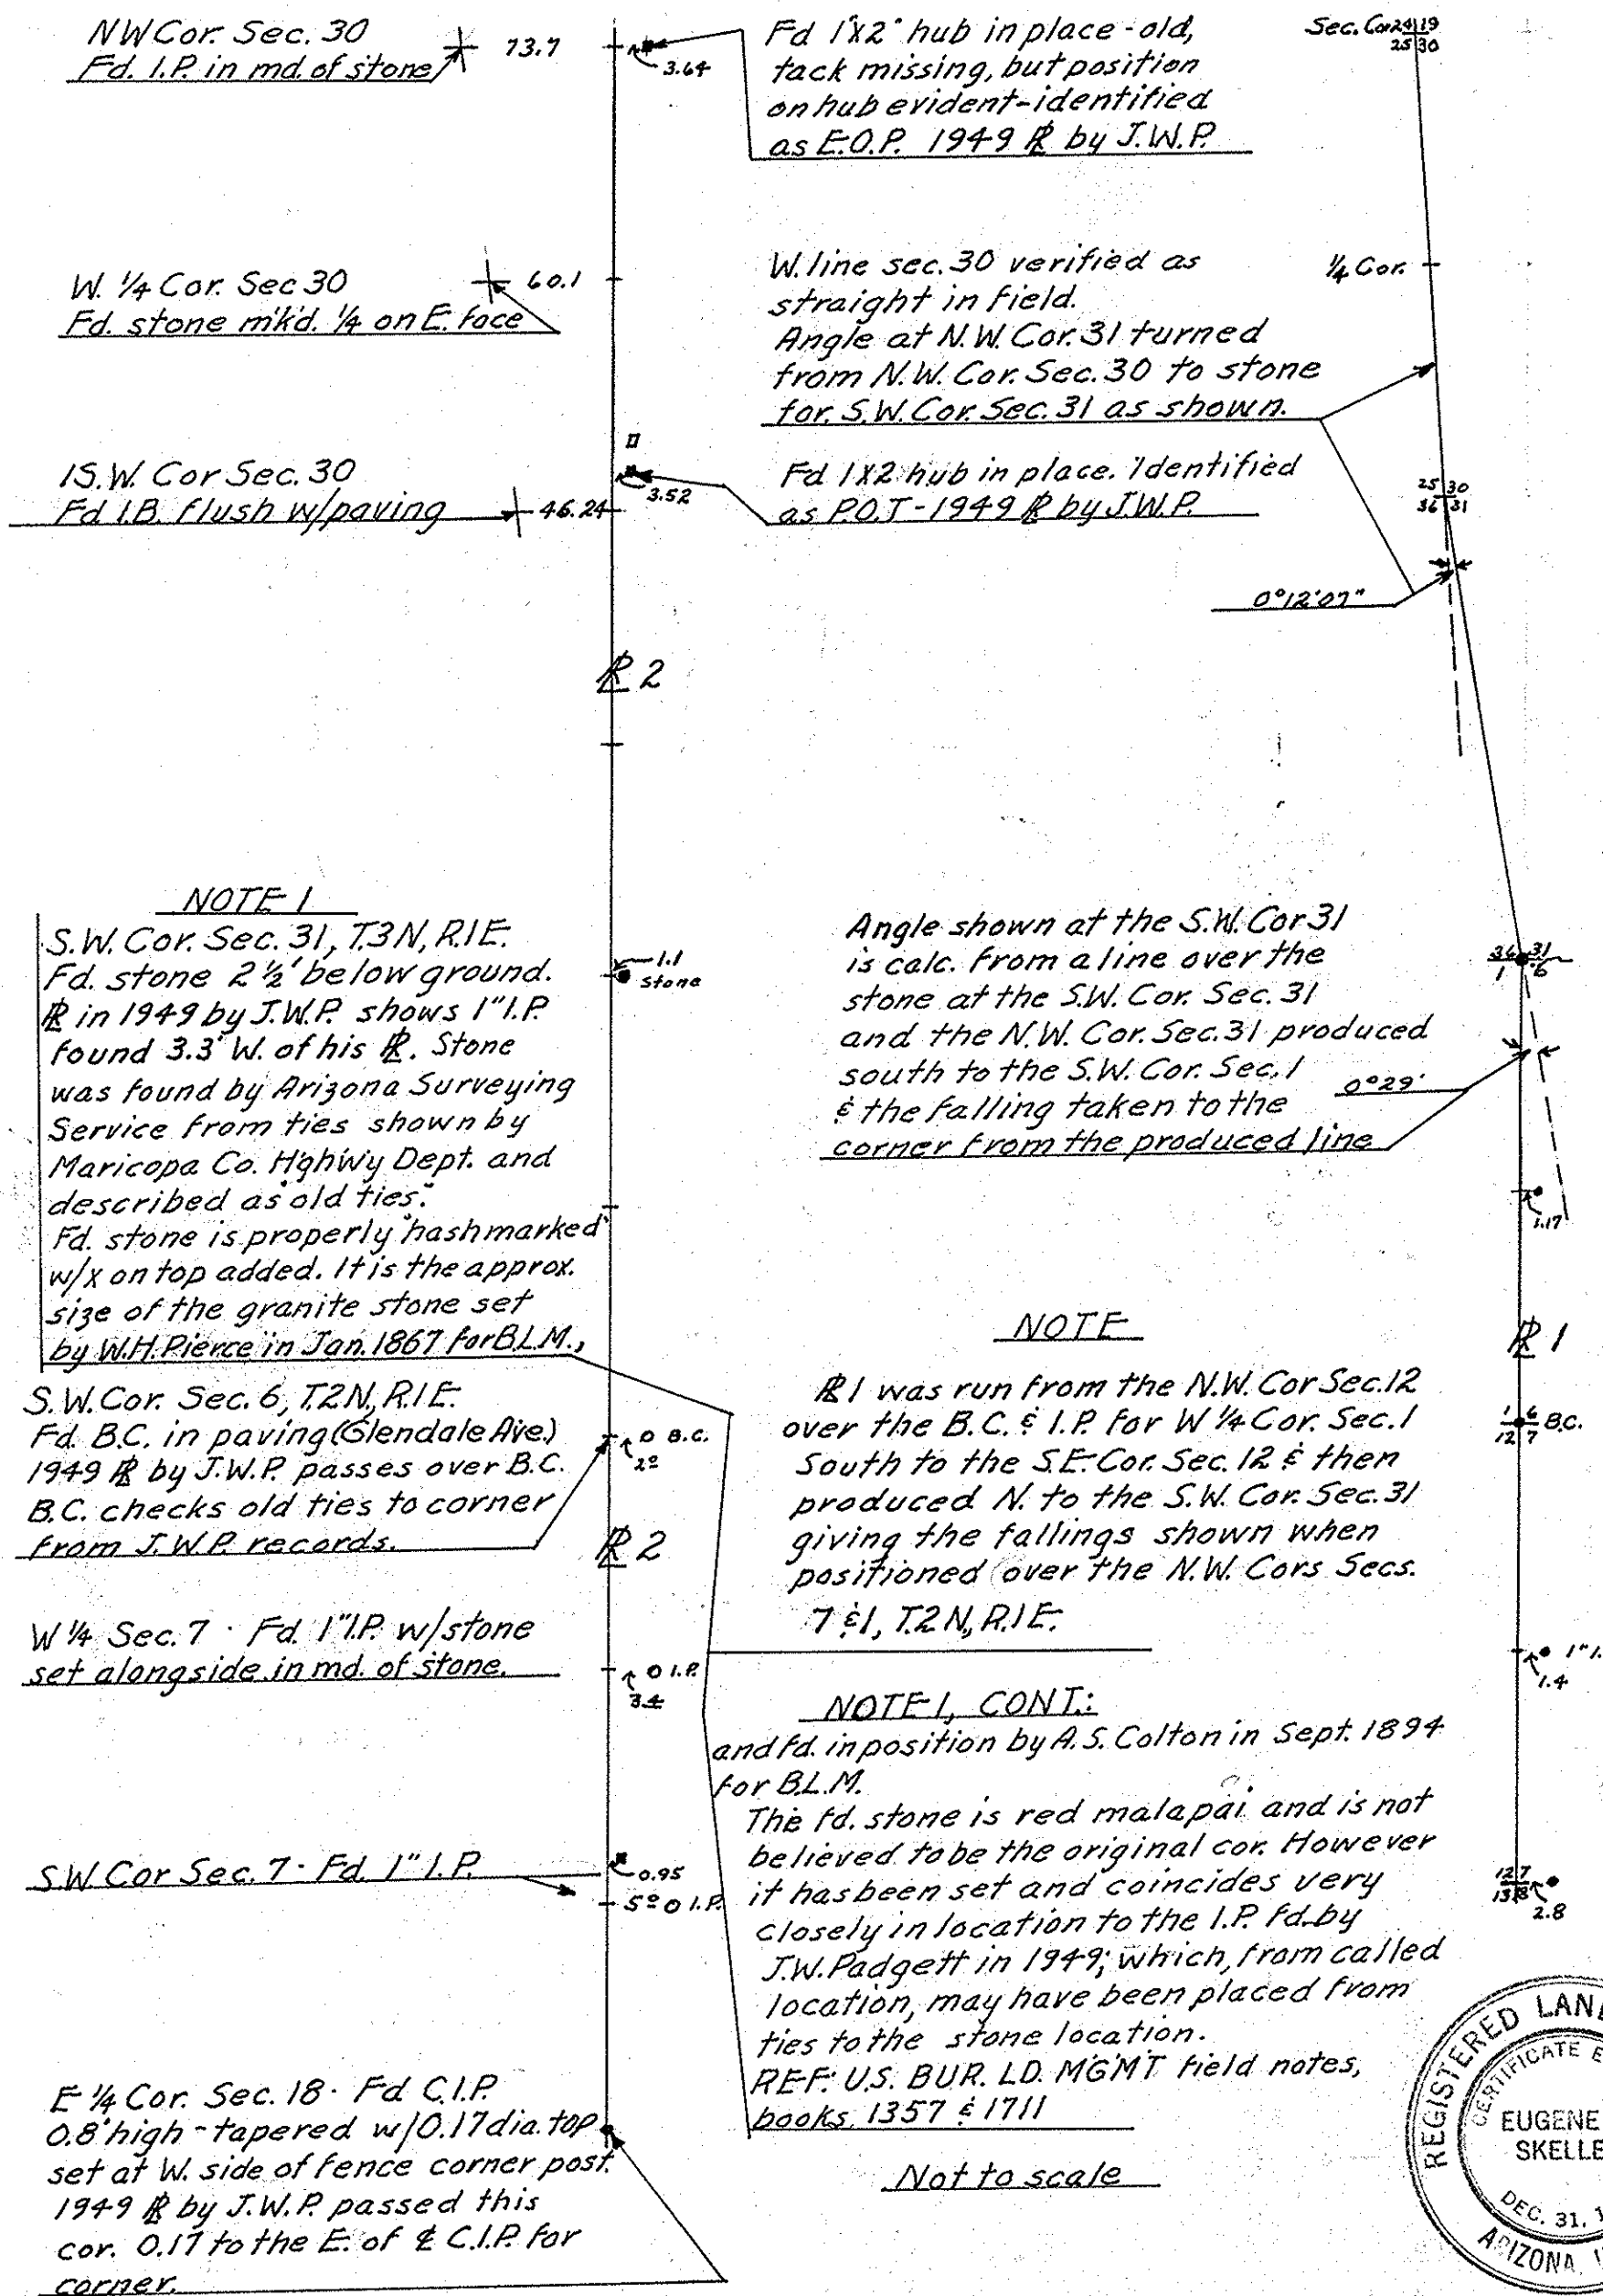 NW Cor. Sec. 30
Fd. I.P. in md. of stone
73.7
3.64
Fd 1"x2" hub in place - old,
tack missing, but position
on hub evident-identified
as E.O.P. 1949 PL by J.W.P.
Sec. Cor. 24 19
25 30
W. 1/4 Cor. Sec 30
Fd. stone m'k'd. 1/4 on E. face
60.1
W. line sec. 30 verified as
straight in field.
Angle at N.W. Cor. 31 turned
from N.W. Cor. Sec. 30 to stone
for S.W. Cor. Sec. 31 as shown.
1/4 Cor.
1S.W. Cor Sec. 30
Fd I.B. flush w/paving
46.24
3.52
Fd 1x2 hub in place. Identified
as P.O.T - 1949 PL by J.W.P.
25 30
36 31
0°12'07"
PL 2
NOTE 1
S.W. Cor. Sec. 31, T.3N, R.1E.
Fd. stone 2 1/2' below ground.
PL in 1949 by J.W.P. shows 1" I.P.
found 3.3' W. of his PL. Stone
was found by Arizona Surveying
Service from ties shown by
Maricopa Co. Hghwy Dept. and
described as "old ties."
Fd. stone is properly "hashmarked"
w/x on top added. It is the approx.
size of the granite stone set
by W.H. Pierce in Jan. 1867 for B.L.M.,
1.1
stone
Angle shown at the S.W. Cor 31
is calc. from a line over the
stone at the S.W. Cor. Sec. 31
and the N.W. Cor. Sec. 31 produced
south to the S.W. Cor. Sec. 1
& the falling taken to the
corner from the produced line
0°29'
36 31
1 6
1.17
S.W. Cor. Sec. 6, T.2N., R.1E.
Fd. B.C. in paving (Glendale Ave.)
1949 PL by J.W.P. passes over B.C.
B.C. checks old ties to corner
from J.W.P. records.
0 B.C.
2º
PL 2
NOTE
PL 1 was run from the N.W. Cor Sec. 12
over the B.C. & I.P. for W 1/4 Cor. Sec. 1
South to the S.E. Cor. Sec. 12 & then
produced N. to the S.W. Cor. Sec. 31
giving the fallings shown when
positioned over the N.W. Cors Secs.
7 & 1, T.2N., R.1E.
PL 1
1 6
12 7
B.C.
W 1/4 Sec. 7 · Fd. 1" I.P. w/stone
set alongside in md. of stone.
0 I.P.
3.4
1" I.
1.4
NOTE 1, CONT.:
and fd. in position by A.S. Colton in Sept. 1894
for B.L.M.
The fd. stone is red malapai and is not
believed to be the original cor. However
it has been set and coincides very
closely in location to the I.P. fd. by
J.W. Padgett in 1949; which, from called
location, may have been placed from
ties to the stone location.
REF: U.S. BUR. LD. MGMT field notes,
books, 1357 & 1711
S.W. Cor Sec. 7 - Fd. 1" I.P.
0.95
5º 0 I.P.
12 7
13 18
2.8
E 1/4 Cor. Sec. 18 · Fd C.I.P.
0.8' high - tapered w/0.17 dia. top
set at W. side of fence corner post.
1949 PL by J.W.P. passed this
cor. 0.17 to the E. of ℄ C.I.P. for
corner.
Not to scale
REGISTERED LAN
CERTIFICATE
EUGENE
SKELLE
DEC. 31, 1
ARIZONA, U